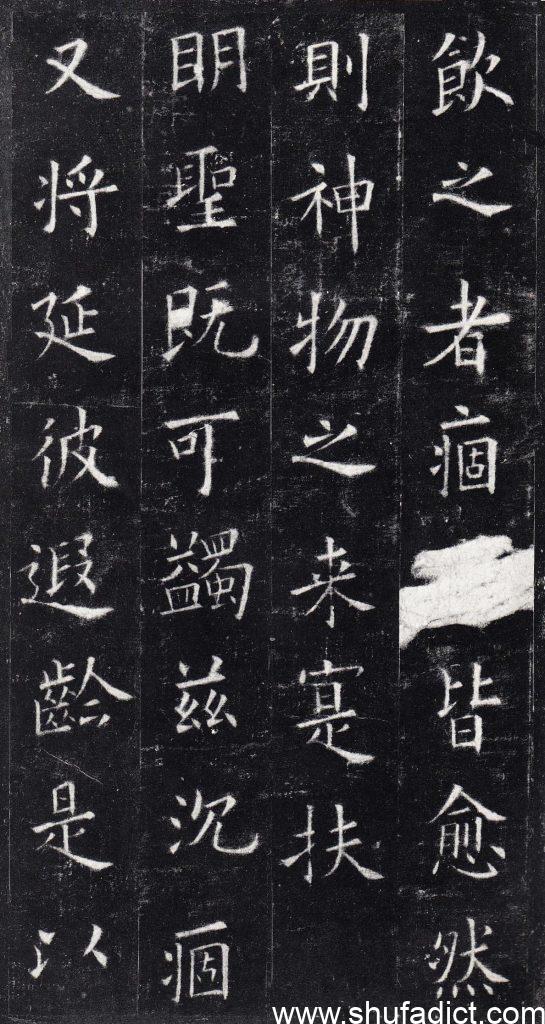 飲之者痼皆愈然
則神物之来寔扶
明聖既可蠲兹沉痼
又将延彼遐齡是以
www.shufadict.com